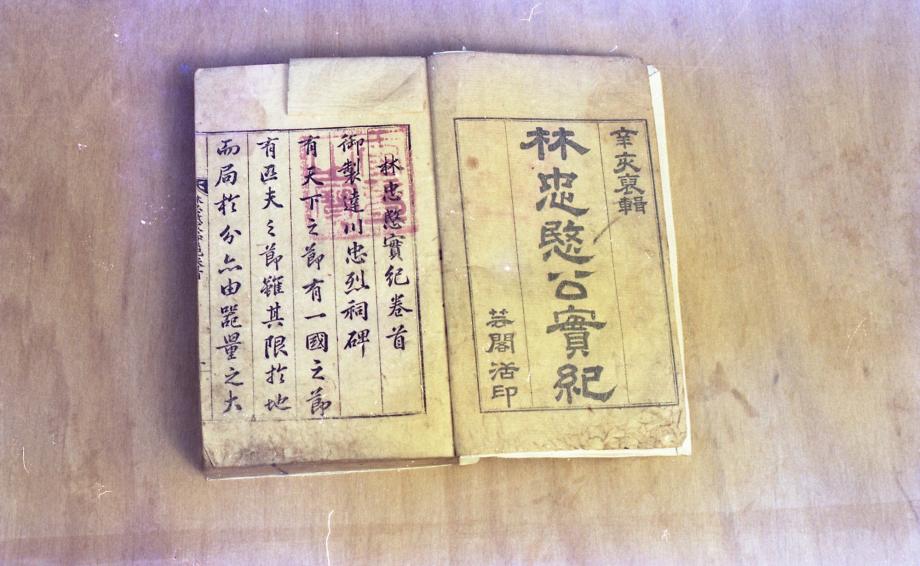 辛亥裒輯
林忠愍公實紀
芸閣活印
林忠愍實紀卷首
御製達川忠烈祠碑
有天下之節有一國之節
有匹夫之節雖其限於地
而局於分亦由器量之大